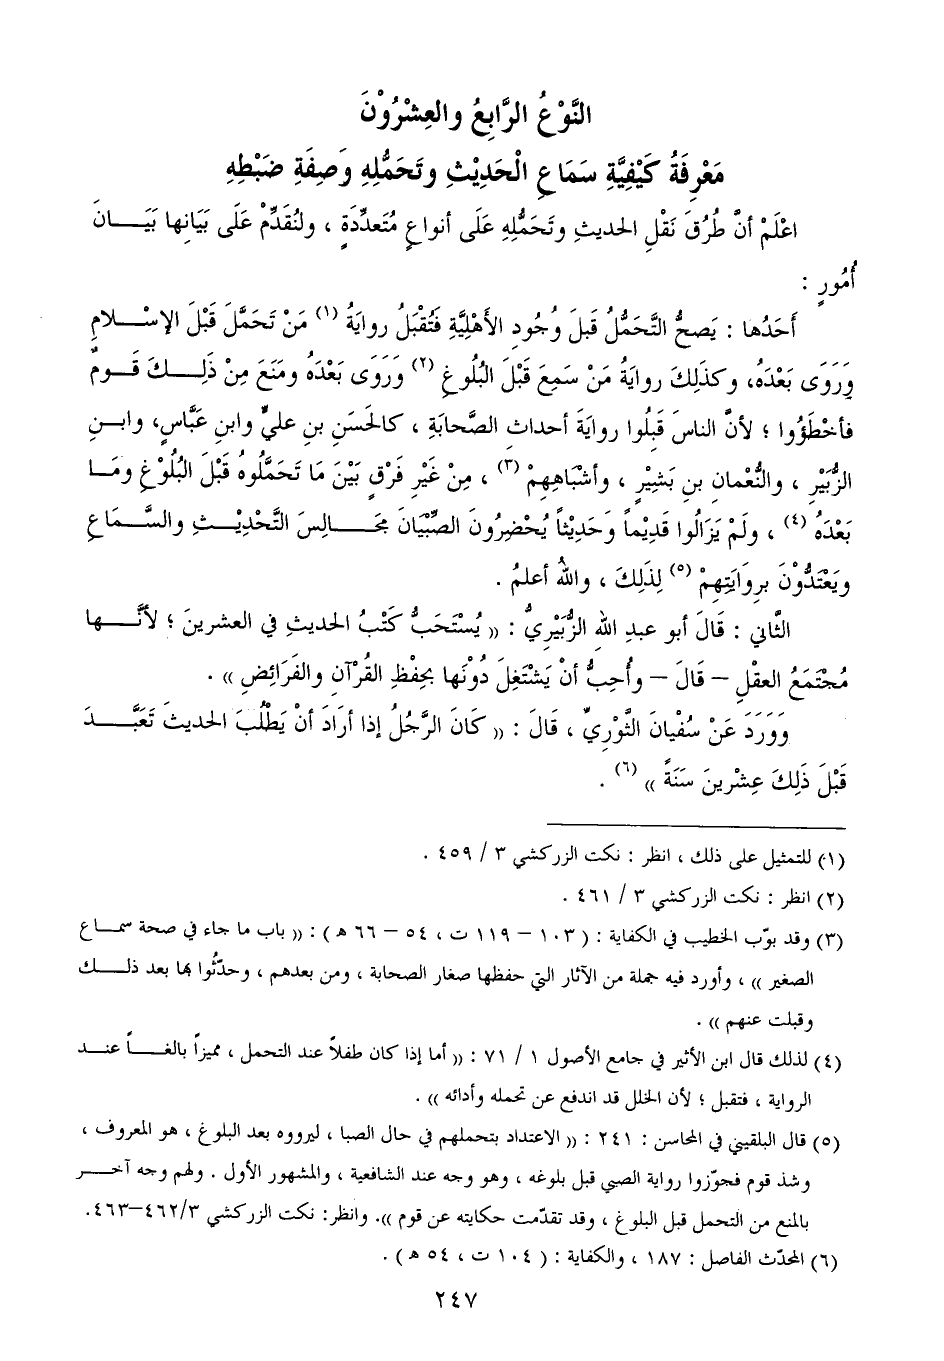 النَّوْعُ الرَّابِعُ والعِشْرُوْنَ
مَعْرِفَةُ كَيْفِيَّةِ سَمَاعِ الْحَدِيْثِ وتَحَمُّلِهِ وَصِفَةِ ضَبْطِهِ
اعْلَمْ أنَّ طُرُقَ نَقْلِ الحديثِ وتَحَمُّلِهِ عَلَى أنواعٍ مُتَعدِّدَةٍ ، ولنُقَدِّمْ عَلَى بَيَانِها بَيَــانَ
أُمُورٍ :
أَحَدُها : يَصحُّ التَّحَمُّلُ قبلَ وُجُودِ الأهْلِيَّةِ فَتُقْبَلُ روايةُ (١) مَنْ تَحَمَّلَ قَبْلَ الإسْــلامِ
وَرَوَى بَعْدَهُ، وكذلِكَ روايةُ مَنْ سَمِعَ قَبْلَ البُلُوغِ (٢) وَرَوَى بَعْدَهُ ومَنَعَ مِنْ ذَلِــكَ قَــومٌ
فأخْطَؤُوا ؛ لأنَّ الناسَ قَبِلُوا روايَةَ أحداث الصَّحابَةِ ، كالحَسَنِ بنِ عليٍّ وابنِ عَبَّاسٍ، وابــنِ
الزُّبَيْرِ ، والنُّعْمانِ بنِ بَشِيْرٍ ، وأشْبَاهِهِمْ (٣) ، مِنْ غَيْرِ فَرْقٍ بَيْنَ مَا تَحَمَّلُوهُ قَبْلَ البُلُوْغِ ومَــا
بَعْدَهُ (٤) ، ولَمْ يَزَالُوا قَدِيْماً وَحَدِيْثاً يُحْضِرُونَ الصِّبْيَانَ مَجَــالِسَ التَّحْدِيْــثِ والسَّــمَاعِ
ويَعْتَدُّوْنَ بروايَتِهِمْ (٥) لِذَلِكَ ، واللهُ أعلمُ .
الثَّاني : قَالَ أبو عبدِ اللهِ الزُّبَيْرِيُّ : (( يُسْتَحَبُّ كَتْبُ الحديثِ في العشرينَ ؛ لأنَّــهَا
مُجْتَمَعُ العقْلِ – قَالَ – وأُحِبُّ أنْ يَشْتَغِلَ دُوْنَها بحِفْظِ القُرْآنِ والفَرَائِضِ )) .
وَوَرَدَ عَنْ سُفْيانَ الثَّوْرِيِّ ، قَالَ : (( كَانَ الرَّجُلُ إذا أرَادَ أنْ يَطْلُبَ الحديثَ تَعَبَّــدَ
قَبْلَ ذَلِكَ عِشْرينَ سَنَةً )) (٦) .
(١) للتمثيل على ذلك ، انظر : نكت الزركشي ٣ / ٤٥٩ .
(٢) انظر : نكت الزركشي ٣ / ٤٦١ .
(٣) وقد بوّب الخطيب في الكفاية : ( ١٠٣ – ١١٩ ت ، ٥٤ – ٦٦ هـ ) : (( باب ما جاء في صحة سمــاع
الصغير )) ، وأورد فيه جملة من الآثار التي حفظها صغار الصحابة ، ومن بعدهم ، وحدّثُوا بها بعد ذلــك
وقبلت عنهم )) .
(٤) لذلك قال ابن الأثير في جامع الأصول ١ / ٧١ : (( أما إذا كان طفلاً عند التحمل ، مميزاً بالغــاً عنــد
الرواية ، فتقبل ؛ لأن الخلل قد اندفع عن تحمله وأدائه )) .
(٥) قال البلقيني في المحاسن : ٢٤١ : (( الاعتداد بتحملهم في حال الصبا ، ليرووه بعد البلوغ ، هو المعروف ،
وشذ قوم فجوّزوا رواية الصبي قبل بلوغه ، وهو وجه عند الشافعية ، والمشهور الأول . ولهم وجه آخــر
بالمنع من التحمل قبل البلوغ ، وقد تقدّمت حكايته عن قوم )). وانظر: نكت الزركشي ٣/٤٦٢–٤٦٣.
(٦) المحدّث الفاصل : ١٨٧ ، والكفاية : ( ١٠٤ ت ، ٥٤ هـ ) .
٢٤٧